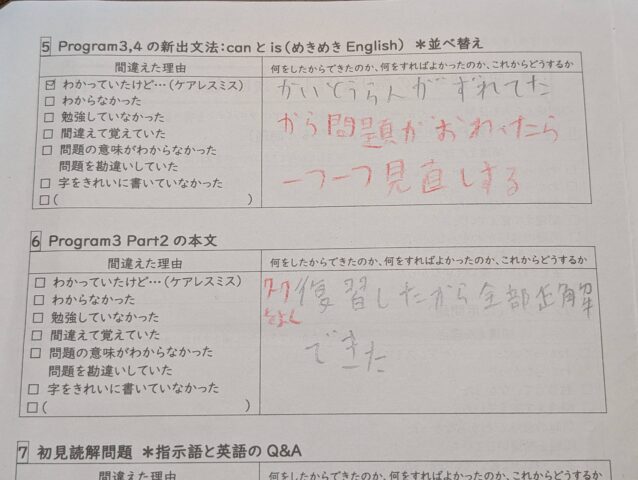 5 Program3,4 の新出文法:canとis(めきめきEnglish) *並べ替え
間違えた理由 何をしたからできたのか、何をすればよかったのか、これからどうするか
☑ わかっていたけど…(ケアレスミス)
□ わからなかった
□ 勉強していなかった
□ 間違えて覚えていた
□ 問題の意味がわからなかった
問題を勘違いしていた
□ 字をきれいに書いていなかった
□( )
かいとうらんがずれてた
から問題がおわったら
一つ一つ見直しする
6 Program3 Part2 の本文
間違えた理由 何をしたからできたのか、何をすればよかったのか、これからどうするか
□ わかっていたけど…(ケアレスミス)
□ わからなかった
□ 勉強していなかった
□ 間違えて覚えていた
□ 問題の意味がわからなかった
問題を勘違いしていた
□ 字をきれいに書いていなかった
□( )
ワークをよく
復習したから全部正解
できた
7 初見読解問題 *指示語と英語のQ&A
間違えた理由 何をしたからできたのか、何をすればよかったのか、これからどうするか